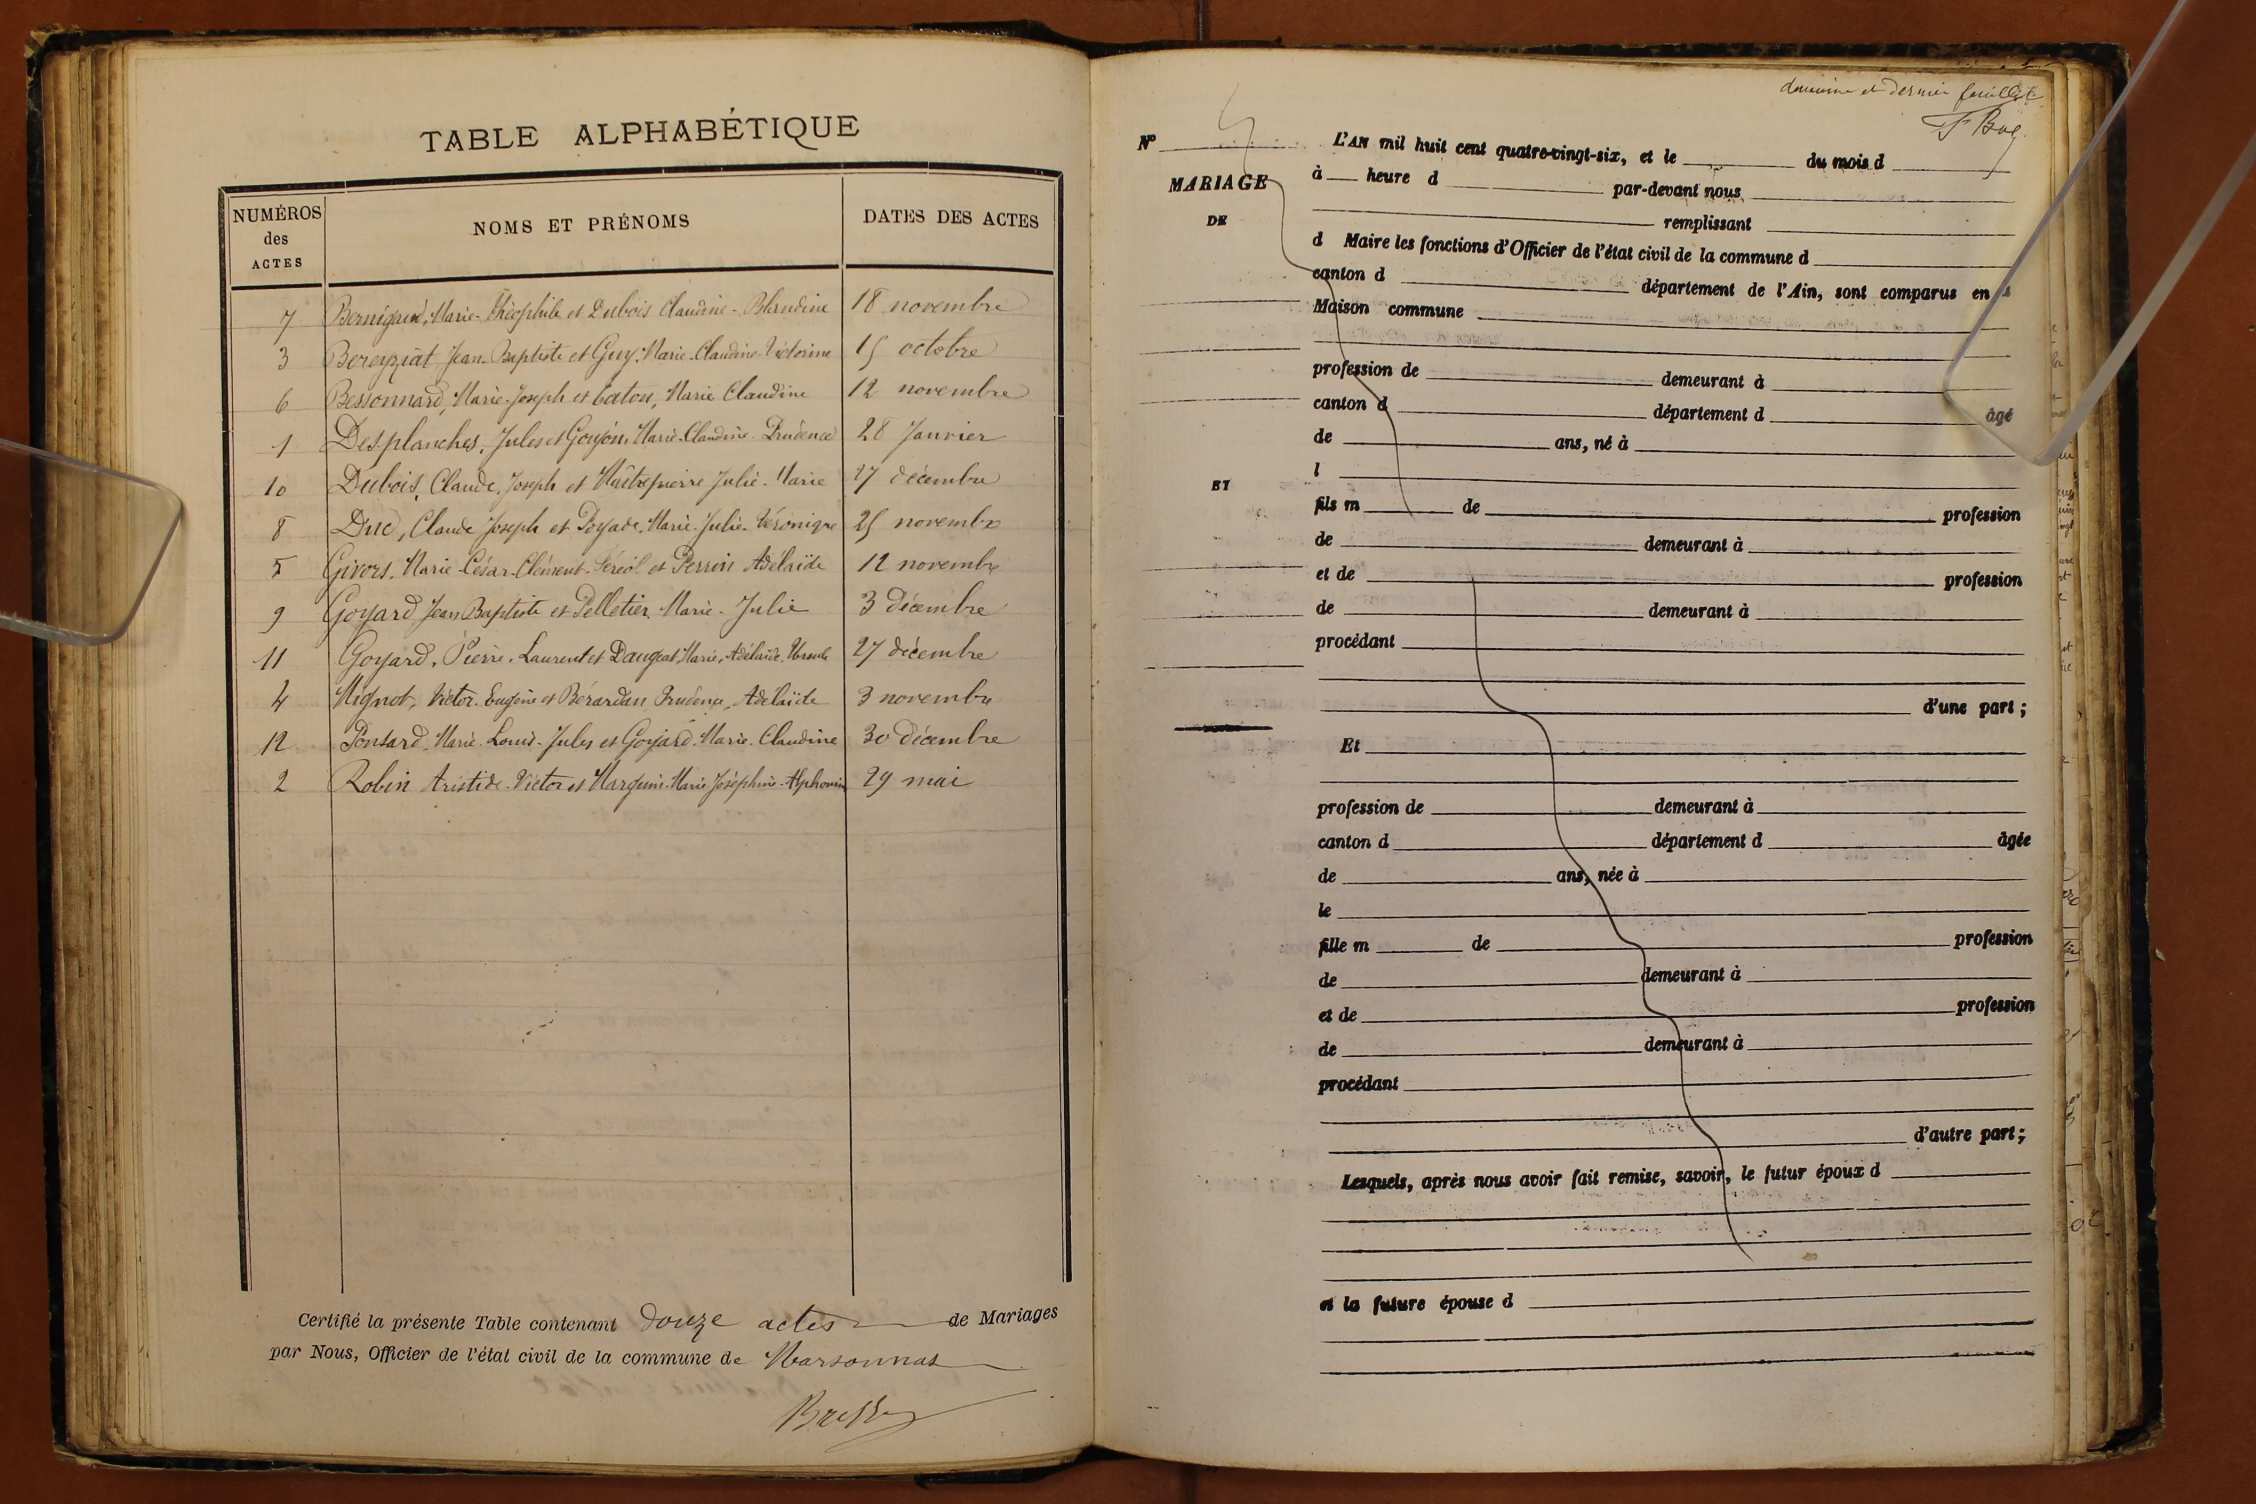 TABLE ALPHABÉTIQUE
NUMÉROS des ACTES
NOMS ET PRÉNOMS
DATES DES ACTES
7 Bernigaud, Marie-Théophile et Dubois Claudine-Blandine 18 novembre
3 Bereyziat Jean-Baptiste et Guy, Marie-Claudine-Victorine 15 octobre
6 Bessonnard, Marie-Joseph et Caton, Marie Claudine 12 novembre
1 Desplanches, Jules et Goyon, Marie-Claudine-Prudence 28 Janvier
10 Dubois, Claude, Joseph et Maîtrepierre Julie-Marie 27 décembre
8 Duc, Claude Joseph et Poyade, Marie-Julie-Véronique 25 novembre
5 Givors, Marie-César-Clément et Perrin Adélaïde 12 novembre
9 Goyard Jean Baptiste et Pelletier, Marie-Julie 3 décembre
11 Goyard, Pierre, Laurent et Daujat Marie, Adélaïde, Ursule 27 décembre
4 Mignot, Victor-Eugène et Bérardan Prudence, Adélaïde 3 novembre
12 Ponsard, Marie-Louis-Jules et Goyard, Marie-Claudine 30 Décembre
2 Robin Aristide-Victor et Marguin-Marie Joséphine-Alphonsine 29 mai
Certifié la présente Table contenant douze actes de Mariages
par Nous, Officier de l'état civil de la commune de Marsonnas
douzième et dernier feuillet
Nº
MARIAGE
DE
ET
L'AN mil huit cent quatre-vingt-six, et le du mois d
à heure d par-devant nous
remplissant
d Maire les fonctions d'Officier de l'état civil de la commune d
canton d département de l'Ain, sont comparus en
Maison commune
profession de demeurant à
canton d département d âgé
de ans, né à
l
fils m de profession
de demeurant à
et de profession
de demeurant à
procédant
d'une part;
Et
profession de demeurant à
canton d département d âgée
de ans, née à
le
fille m de profession
de demeurant à
et de profession
de demeurant à
procédant
d'autre part;
Lesquels, après nous avoir fait remise, savoir, le futur époux d
et la future épouse d